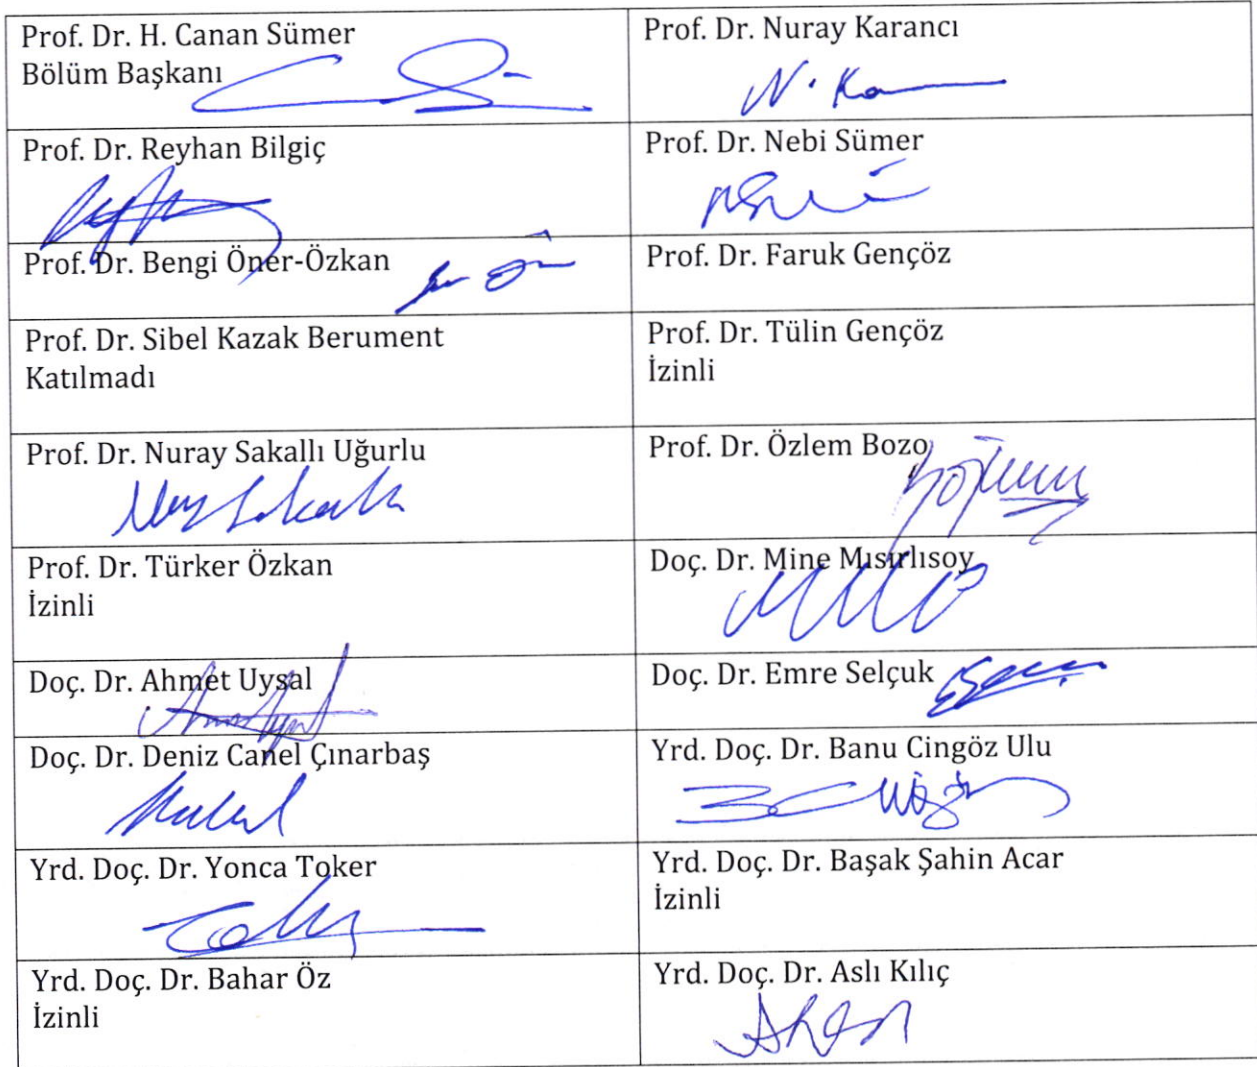 Prof. Dr. H. Canan Sümer
Bölüm Başkanı
Prof. Dr. Nuray Karancı
N. Ka
Prof. Dr. Reyhan Bilgiç
Prof. Dr. Nebi Sümer
Prof. Dr. Bengi Öner-Özkan
Prof. Dr. Faruk Gençöz
Prof. Dr. Sibel Kazak Berument
Katılmadı
Prof. Dr. Tülin Gençöz
İzinli
Prof. Dr. Nuray Sakallı Uğurlu
Prof. Dr. Özlem Bozo
Prof. Dr. Türker Özkan
İzinli
Doç. Dr. Mine Mısırlısoy
Doç. Dr. Ahmet Uysal
Doç. Dr. Emre Selçuk
Doç. Dr. Deniz Canel Çınarbaş
Yrd. Doç. Dr. Banu Cingöz Ulu
Yrd. Doç. Dr. Yonca Toker
Yrd. Doç. Dr. Başak Şahin Acar
İzinli
Yrd. Doç. Dr. Bahar Öz
İzinli
Yrd. Doç. Dr. Aslı Kılıç